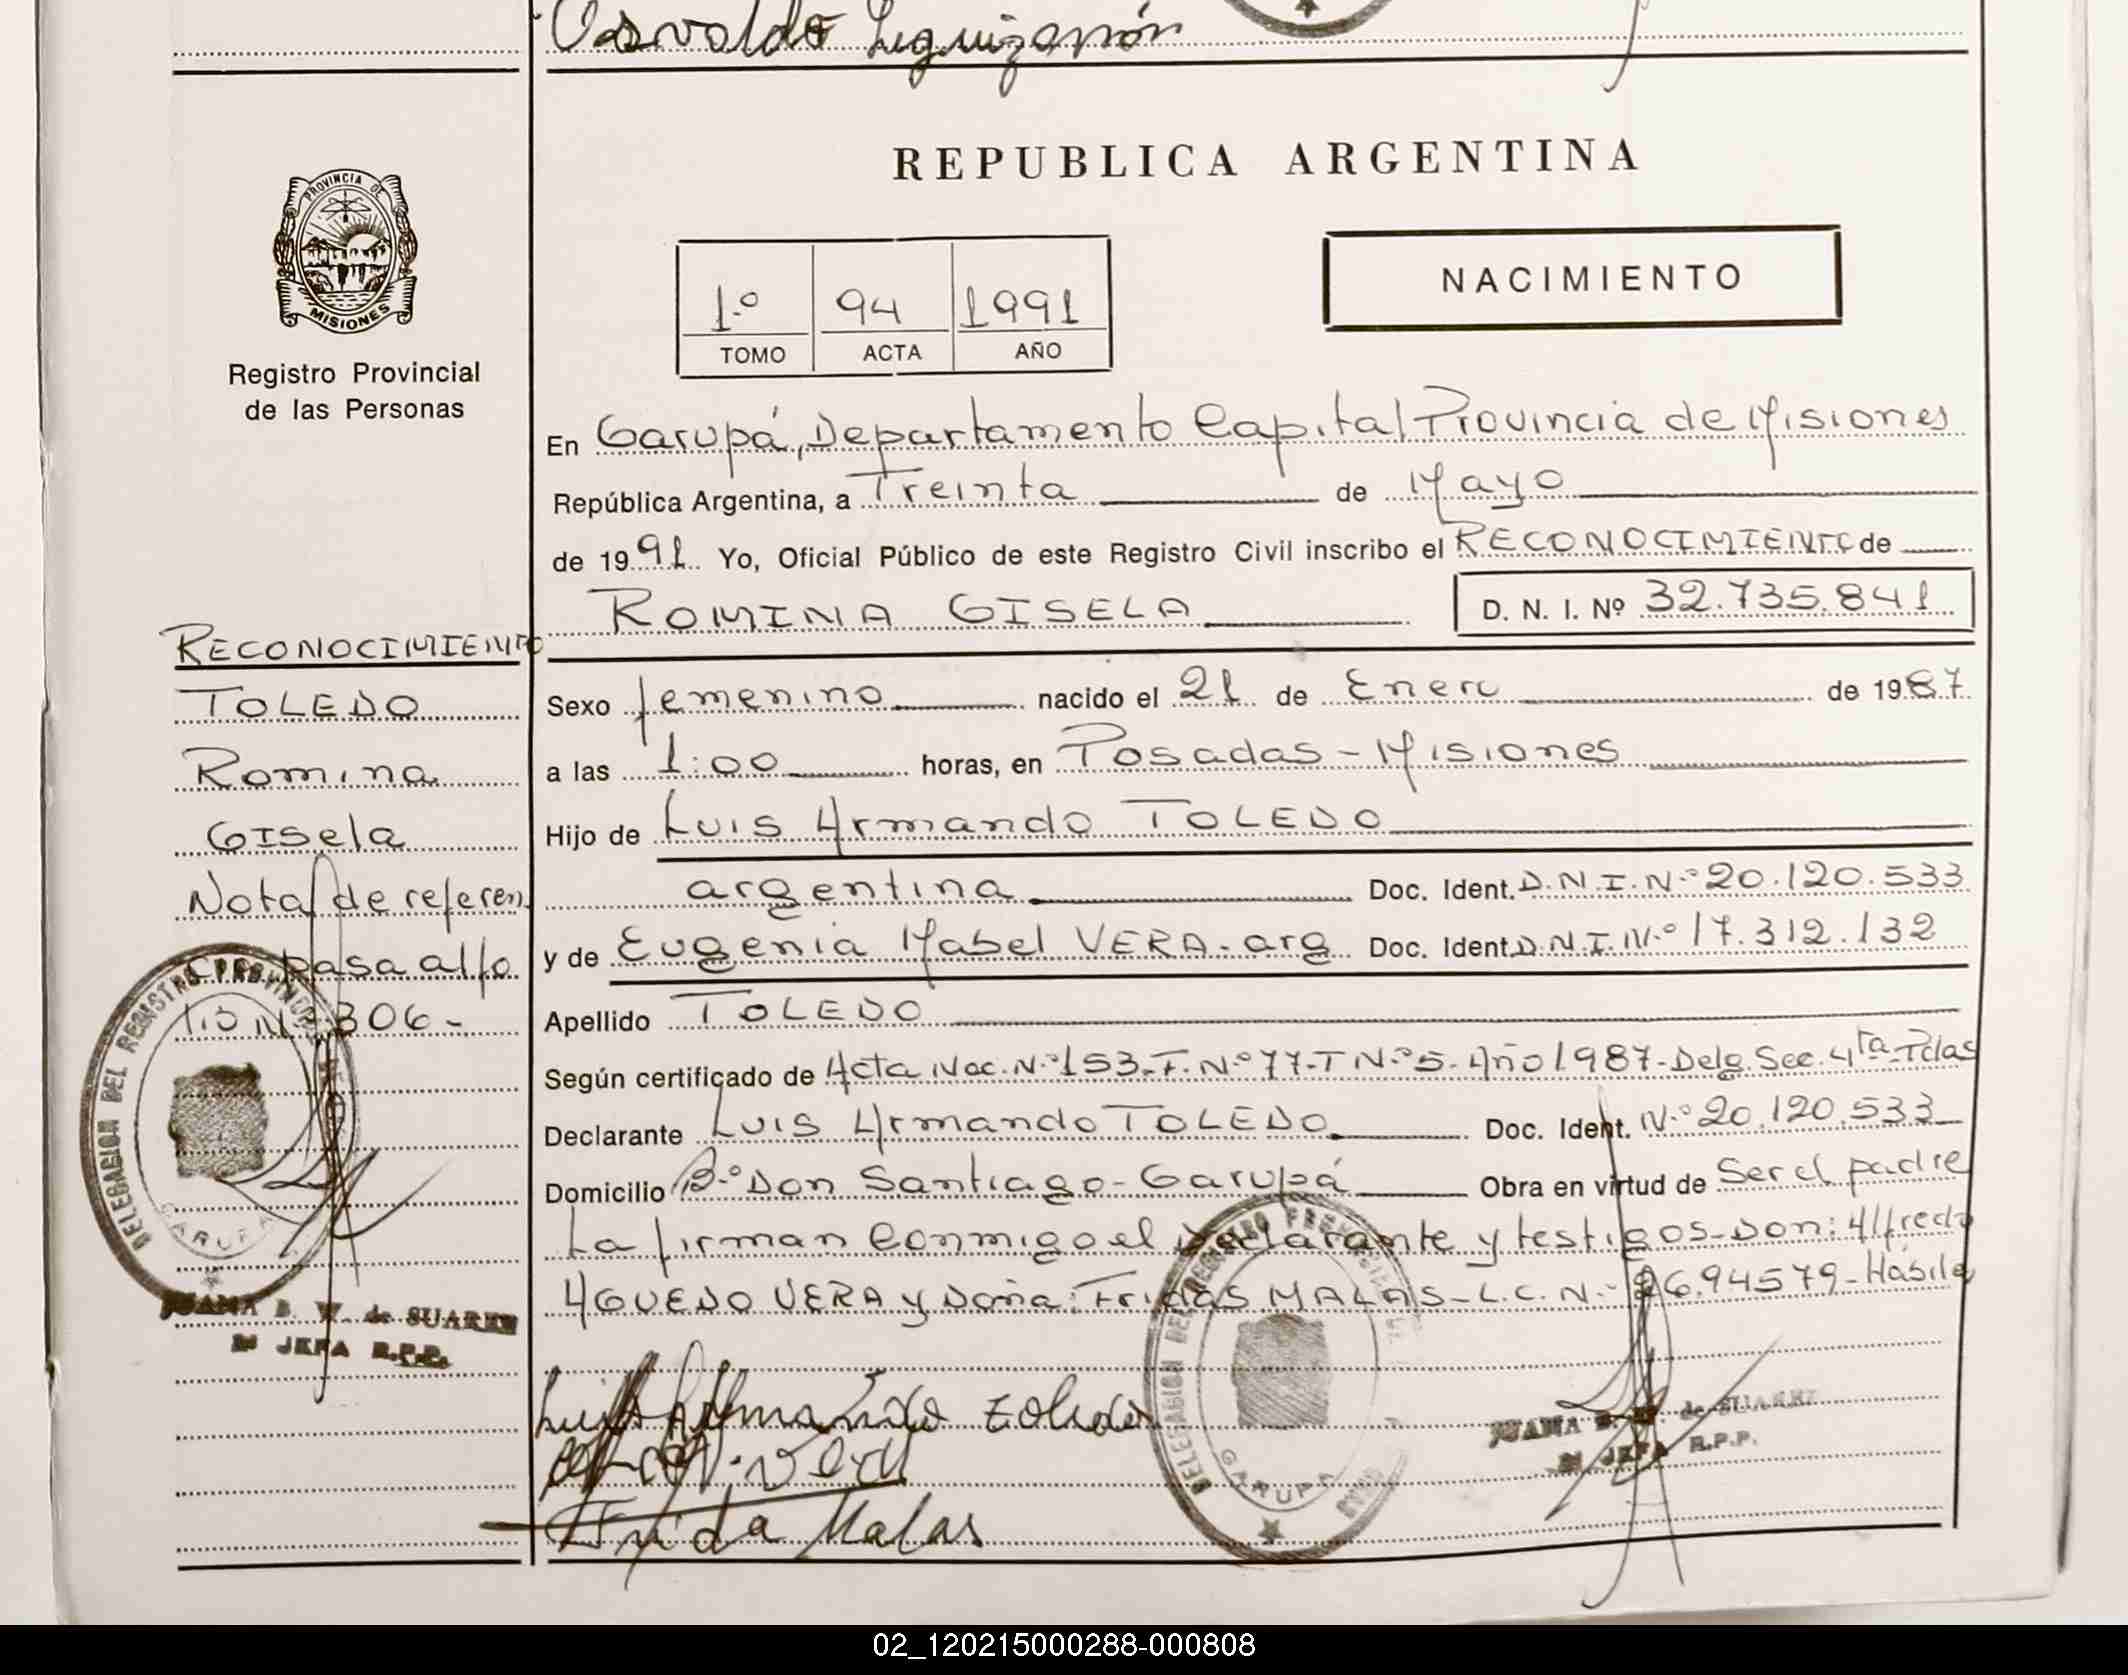 Osvaldo Leguizamón
PROVINCIA DE
MISIONES
Registro Provincial
de las Personas
REPUBLICA ARGENTINA
1.º 94 1991
TOMO ACTA AÑO
NACIMIENTO
En Garupá, Departamento Capital Provincia de Misiones
República Argentina, a Treinta de Mayo
de 1991 Yo, Oficial Público de este Registro Civil inscribo el RECONOCIMIENTO de
ROMINA GISELA D. N. I. Nº 32.735.841
RECONOCIMIENTO
TOLEDO
Romina
Gisela
Nota de referen
pasa al fo
306-
Sexo femenino nacido el 21 de Enero de 1987
a las 1:00 horas, en Posadas - Misiones
Hijo de Luis Armando TOLEDO
argentina Doc. Ident. D.N.I.N.º 20.120.533
y de Eugenia Mabel VERA - arg Doc. Ident. D.N.I.N.º 17.312.132
Apellido TOLEDO
Según certificado de Acta Nac. N.º 153-F.N.º 77-T N.º 5-Año 1987-Delg. Sec. 4ta-Pdas
Declarante Luis Armando TOLEDO Doc. Ident. N.º 20.120.533
Domicilio B.º Don Santiago - Garupá Obra en virtud de Ser el padre
La firman conmigo el Declarante y testigos-Don: Alfredo
AGUEDO VERA y Doña: Fridas MALAS-L.C.N.- 2694579-Hábile
DELEGACION DEL REGISTRO PROVINCIAL DE
GARUPA
JUANA B. W. de SUAREZ
JEFA R.P.P.
Luis Armando Toledo
Frida Malas
DELEGACION DEL REGISTRO PROVINCIAL
GARUPA
JUANA B. W. de SUAREZ
JEFA R.P.P.
02_120215000288-000808